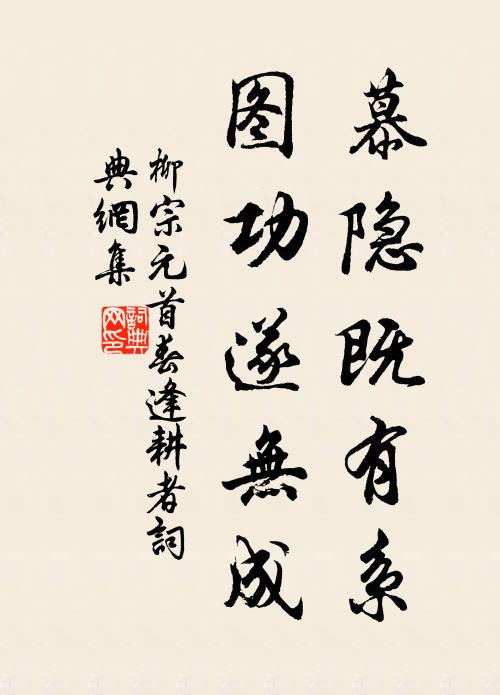 慕隐既有系
图功遂無成
柳宗元首春逢耕者詞
典網集
詞典
网印